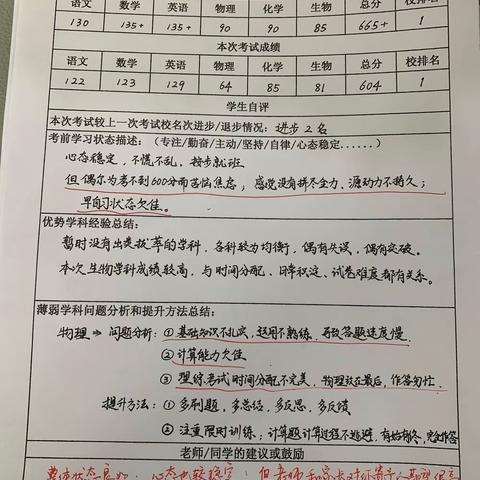 语文 数学 英语 物理 化学 生物 总分 校排名
130 135+ 135+ 90 90 85 665+ 1
本次考试成绩
语文 数学 英语 物理 化学 生物 总分 校排名
122 123 129 64 85 81 604 1
学生自评
本次考试较上一次考试校名次进步/退步情况：进步2名
考前学习状态描述：（专注/勤奋/主动/坚持/自律/心态稳定......）
心态稳定，不慌不乱，按步就班
但偶尔为考不到600分而苦恼焦虑；感觉没有拼尽全力、源动力不持久；
早自习状态欠佳。
优势学科经验总结：
暂时没有出类拔萃的学科，各科较为均衡，偶有失误，偶有突破。
本次生物学科成绩较高，与时间分配、日常积淀、试卷难度都有关系。
薄弱学科问题分析和提升方法总结：
物理 ⇒ 问题分析：① 基础知识不扎实，运用不熟练，导致答题速度慢
② 计算能力欠佳
③ 理综考试时间分配不完美，物理放在最后，作答匆忙．
提升方法：① 多刷题，多总结，多反思，多反馈
② 注重限时训练；计算题计算过程不逃避，有始有终，完全作答
老师/同学的建议或鼓励
整体状态良好；心态也较稳定；但老师和家长对你寄予